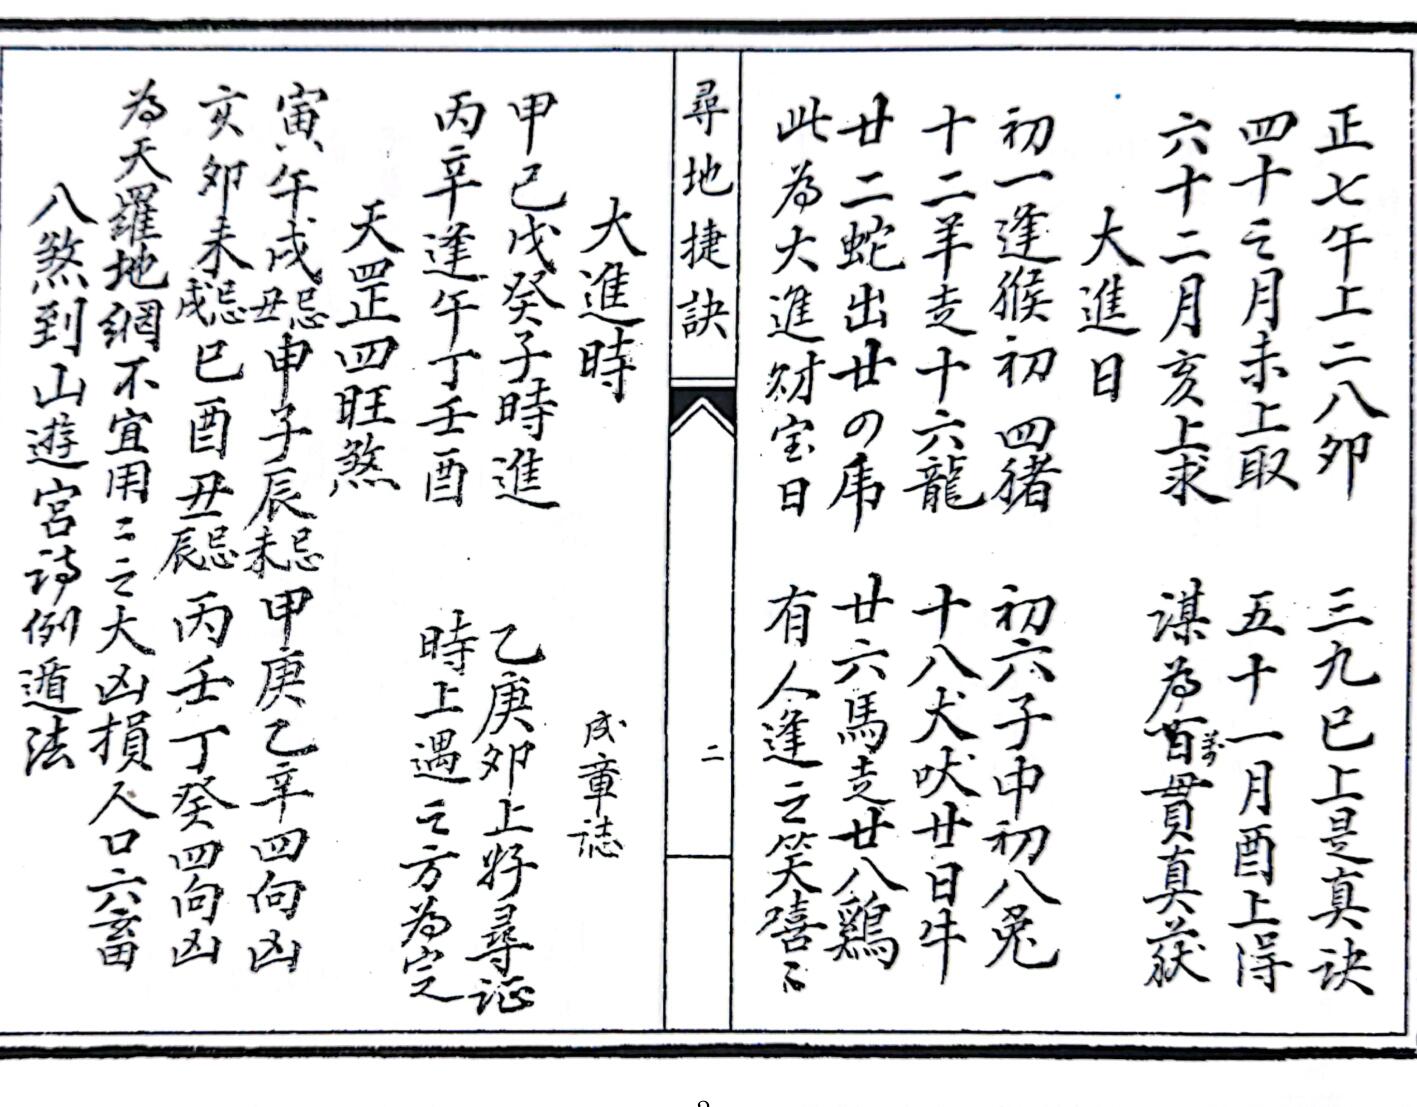 正七午上二八卯 三九巳上是真訣
四十之月未上取 五十一月酉上淂
六十二月亥上求 謀為百萬毋貫真茯
大進日
初一逢猴初四猪 初六子中初八兔
十二羊走十六龍 十八犬吠廿日牛
廿二蛇出廿の虎 廿六馬走廿八鷄
此為大進财宝日 有人逢之笑嘻〻
尋地捷訣
二
大進時 成章誌
甲己戊癸子時進 乙庚卯上好尋证
丙辛逢午丁壬酉 時上遇之方為定
天罡四旺煞
寅午戌忌丑申子辰忌未甲庚乙辛四向凶
亥卯未忌戌巳酉丑忌辰丙壬丁癸四向凶
為天羅地網不宜用〻之大凶損人口六畜
八煞到山遊宮诗例遁法